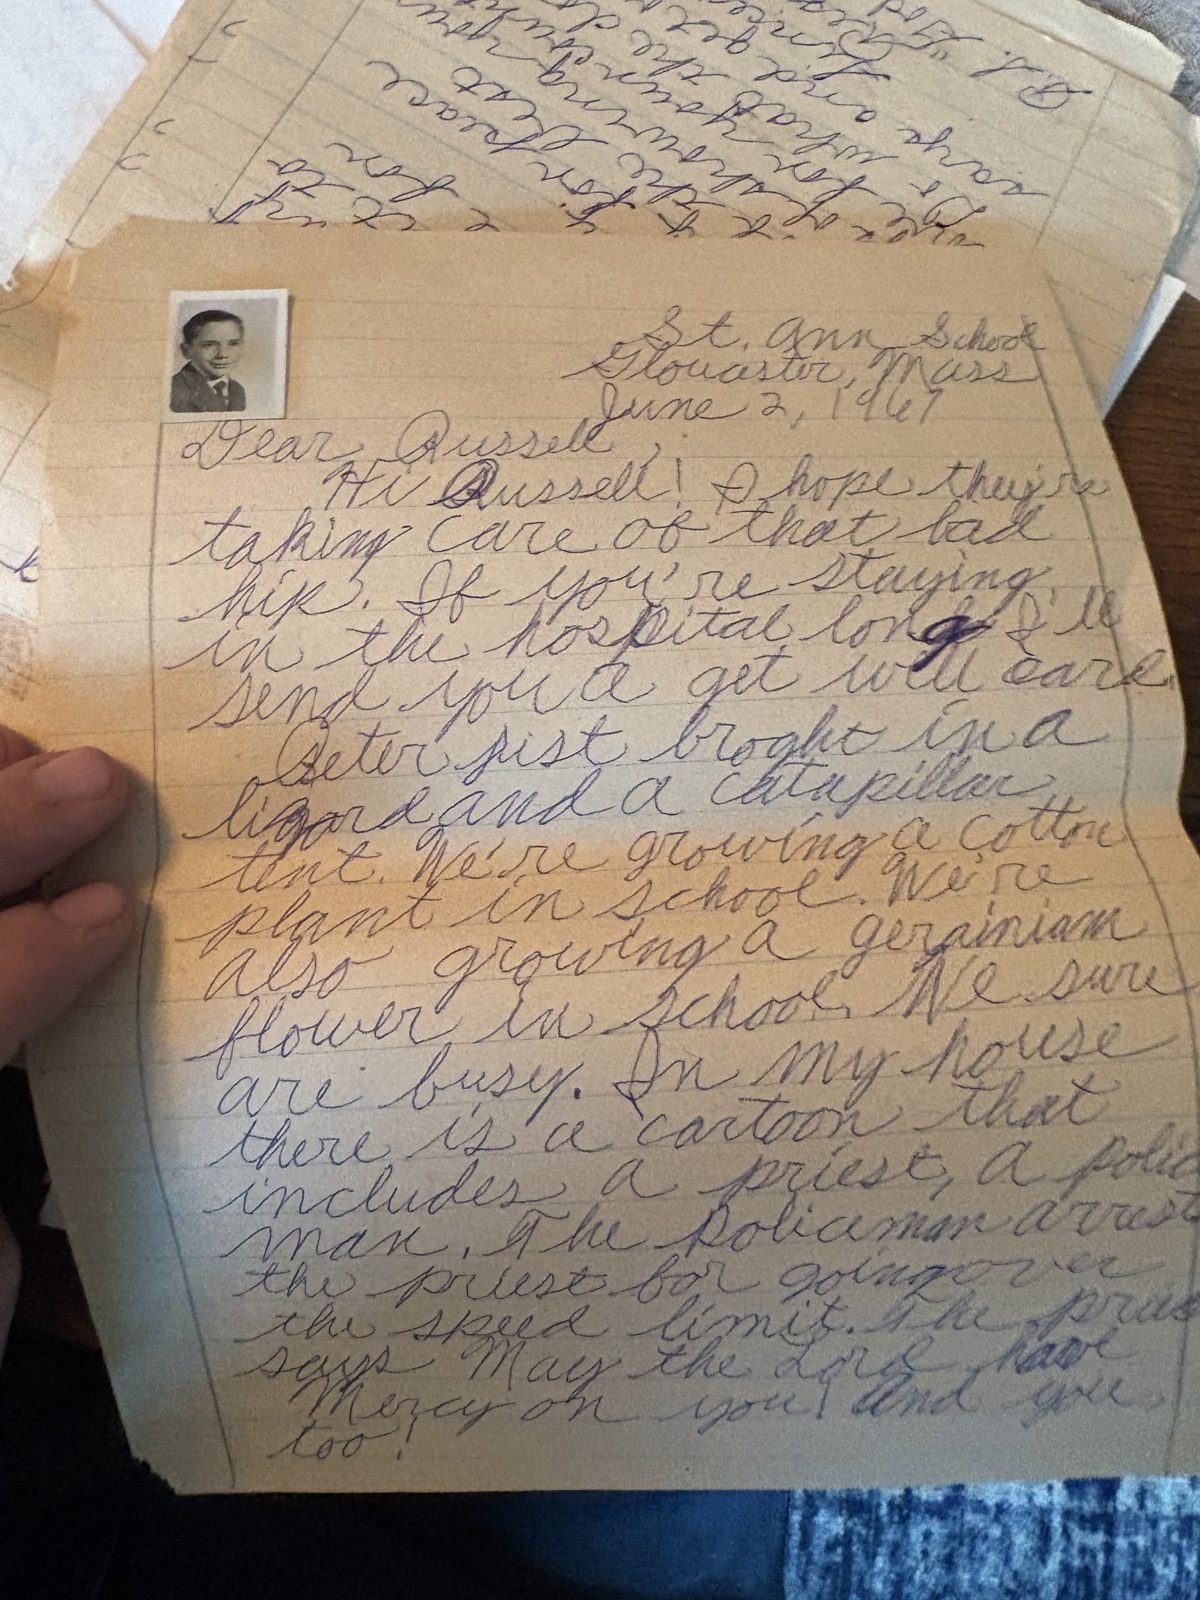 St. Ann School
Glouaster, Mass
June 2, 1967
Dear Russell,
Hi Russell! I hope they're
taking care of that bad
hip. If you're staying
in the hospital long I'll
send you a get well card.
Peter just broght in a
lizard and a catapillar
tent. We're growing a cotton
plant in school. We're
also growing a gerainiam
flower in school. We sure
are busy. In my house
there is a cartoon that
includes a priest, a polic
man. The policeman arrest
the priest for going over
the speed limit. The pries
says May the Lord have
Mercy on you! And you
too!